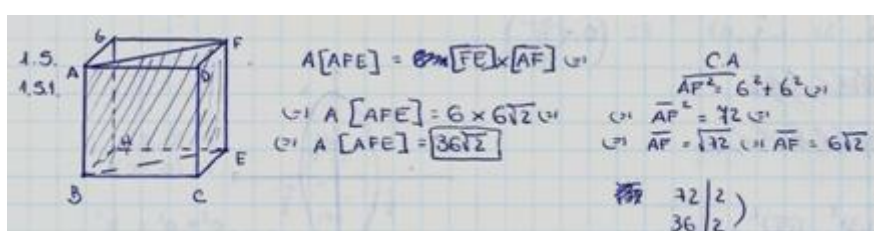 1.5.
1.5.1.
G
F
A
D
H
E
B
C
A[AFE] = F̅E̅ × A̅F̅ (=)
(=) A [AFE] = 6 × 6√2 (=)
(=) A [AFE] = 36√2
C.A
A̅F̅² = 6² + 6² (=)
(=) A̅F̅² = 72 (=)
(=) A̅F̅ = √72 (=) A̅F̅ = 6√2
72 | 2
36 | 2 )